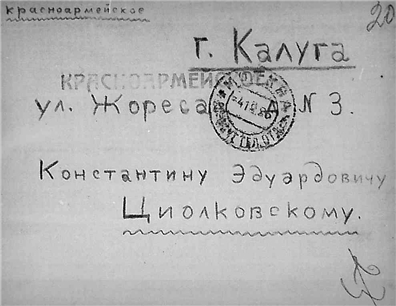 красноармейское
20
г. Калуга
КРАСНОАРМЕЙСКОЕ
ул. Жореса д N 3.
Константину Эдуардовичу
Циолковскому.